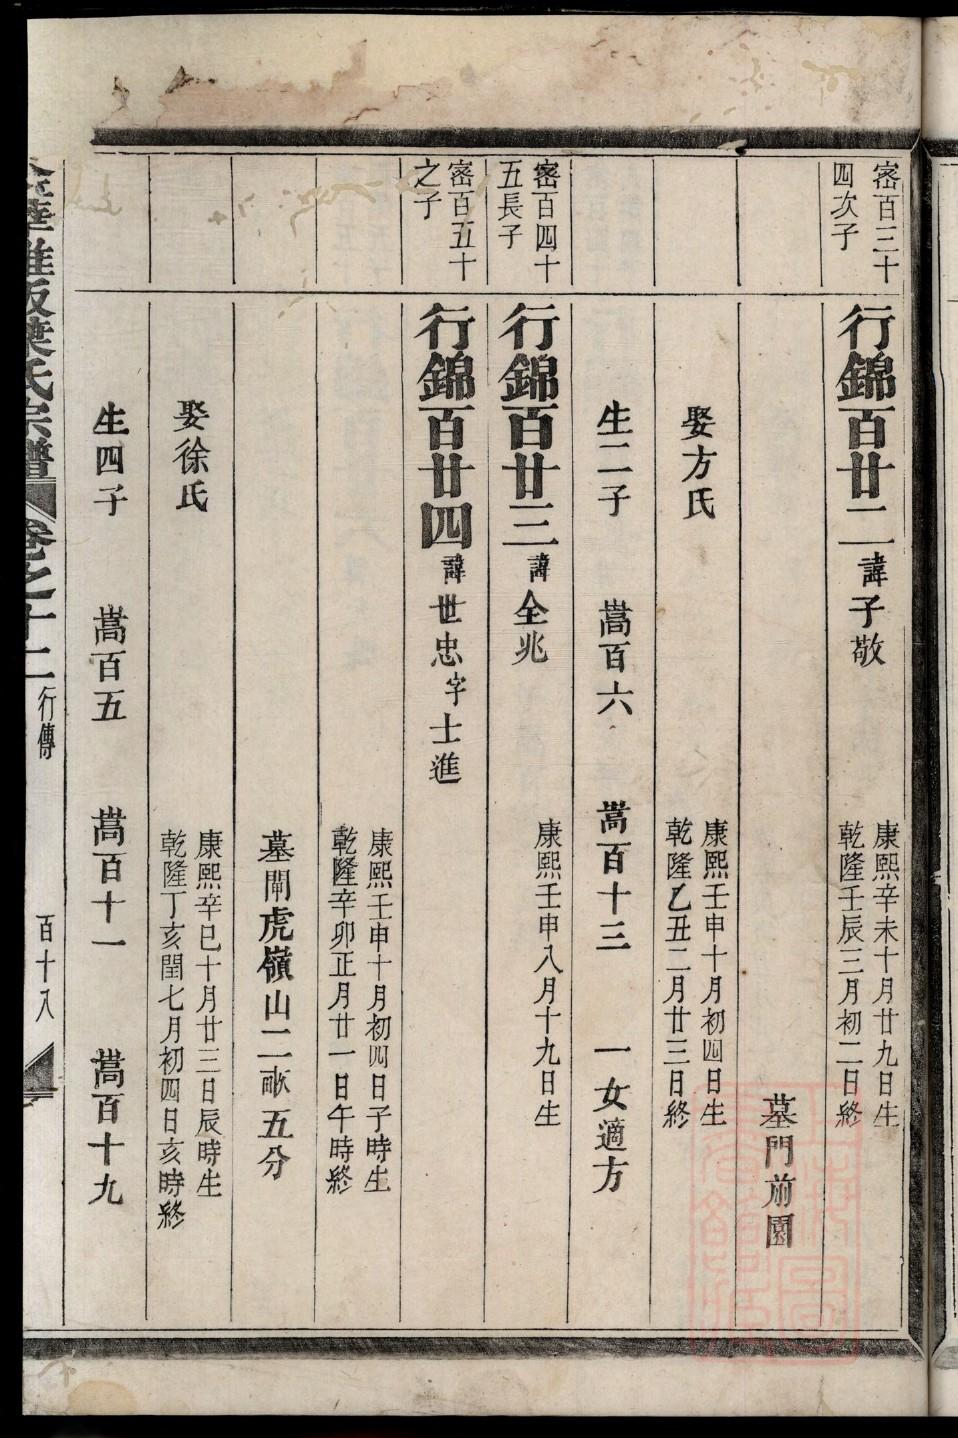 密百三十
四次子
行錦百廿二諱子敬
康熙辛未十月廿九日生
乾隆壬辰三月初二日終
墓門前園
娶方氏
康熙壬申十月初四日生
乾隆乙丑二月廿三日終
生二子 嵩百六 嵩百十三 一女適方
密百四十
五長子
行錦百廿三諱全兆
康熙壬申八月十九日生
密百五十
之子
行錦百廿四諱世忠字士進
康熙壬申十月初四日子時生
乾隆辛卯正月廿一日午時終
墓閘虎嶺山二畝五分
娶徐氏
康熙辛巳十月廿三日辰時生
乾隆丁亥閏七月初四日亥時終
生四子 嵩百五 嵩百十一 嵩百十九
葉氏宗譜 卷之十二 行傳 百十八